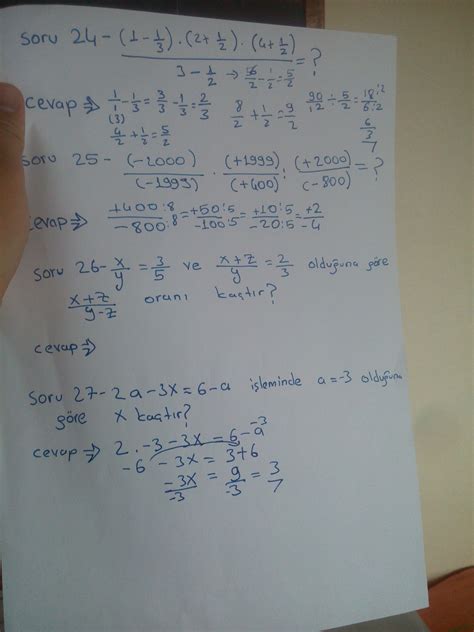 Soru 24- (1 - 1/3) . (2 + 1/2) . (4 + 1/2) = ?
3 - 1/2 → 6/2 - 1/2 = 5/2
cevap ⇒ 1/1 - 1/3 = 3/3 - 1/3 = 2/3 8/2 + 1/2 = 9/2 90/12 ÷ 5/2 = 18:2/6:2
(3) 4/2 + 1/2 = 5/2
Soru 25- (-2000)/(-1999) . (+1999)/(+400) : (+2000)/(-800) = ?
cevap ⇒ +400:8/-800:8 = +50:5/-100:5 = +10:5/-20:5 = +2/-4
Soru 26- x/y = 3/5 ve x+z/y = 2/3 olduğuna göre
x+z/y-z oranı kaçtır?
cevap ⇒
Soru 27- 2a-3x=6-a işleminde a=-3 olduğuna
göre x kaçtır?
cevap ⇒ 2.-3-3x=6-a -3
-6 -3x = 3+6
-3x/-3 = 9/-3 = 3/7